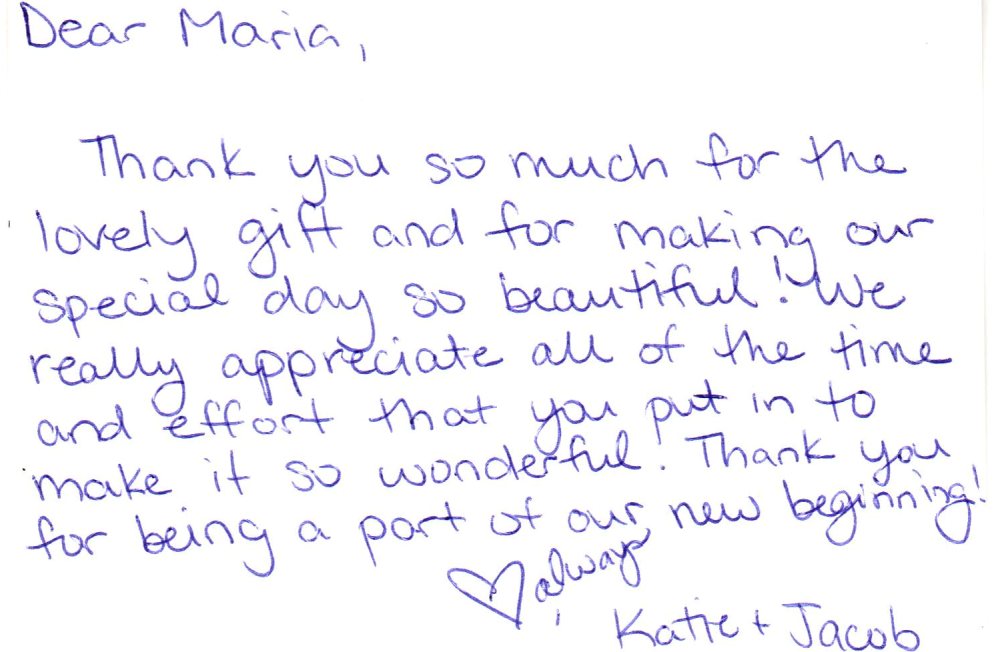 Dear Maria,
Thank you so much for the
lovely gift and for making our
special day so beautiful! We
really appreciate all of the time
and effort that you put in to
make it so wonderful. Thank you
for being a part of our new beginning!
♡ always,
Katie + Jacob